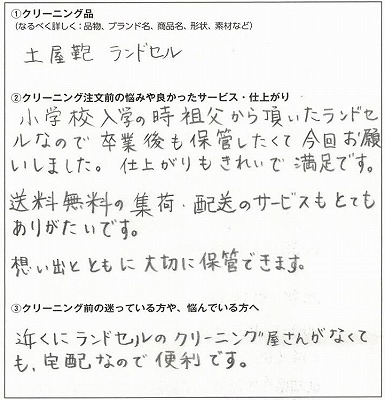 ①クリーニング品
（なるべく詳しく：品物、ブランド名、商品名、形状、素材など）
土屋鞄 ランドセル
②クリーニング注文前の悩みや良かったサービス・仕上がり
小学校入学の時祖父から頂いたランドセ
ルなので卒業後も保管したくて今回お願
いしました。仕上がりもきれいで満足です。
送料無料の集荷・配送のサービスもとても
ありがたいです。
想い出とともに大切に保管できます。
③クリーニング前の迷っている方や、悩んでいる方へ
近くにランドセルのクリーニング屋さんがなくて
も、宅配なので便利です。